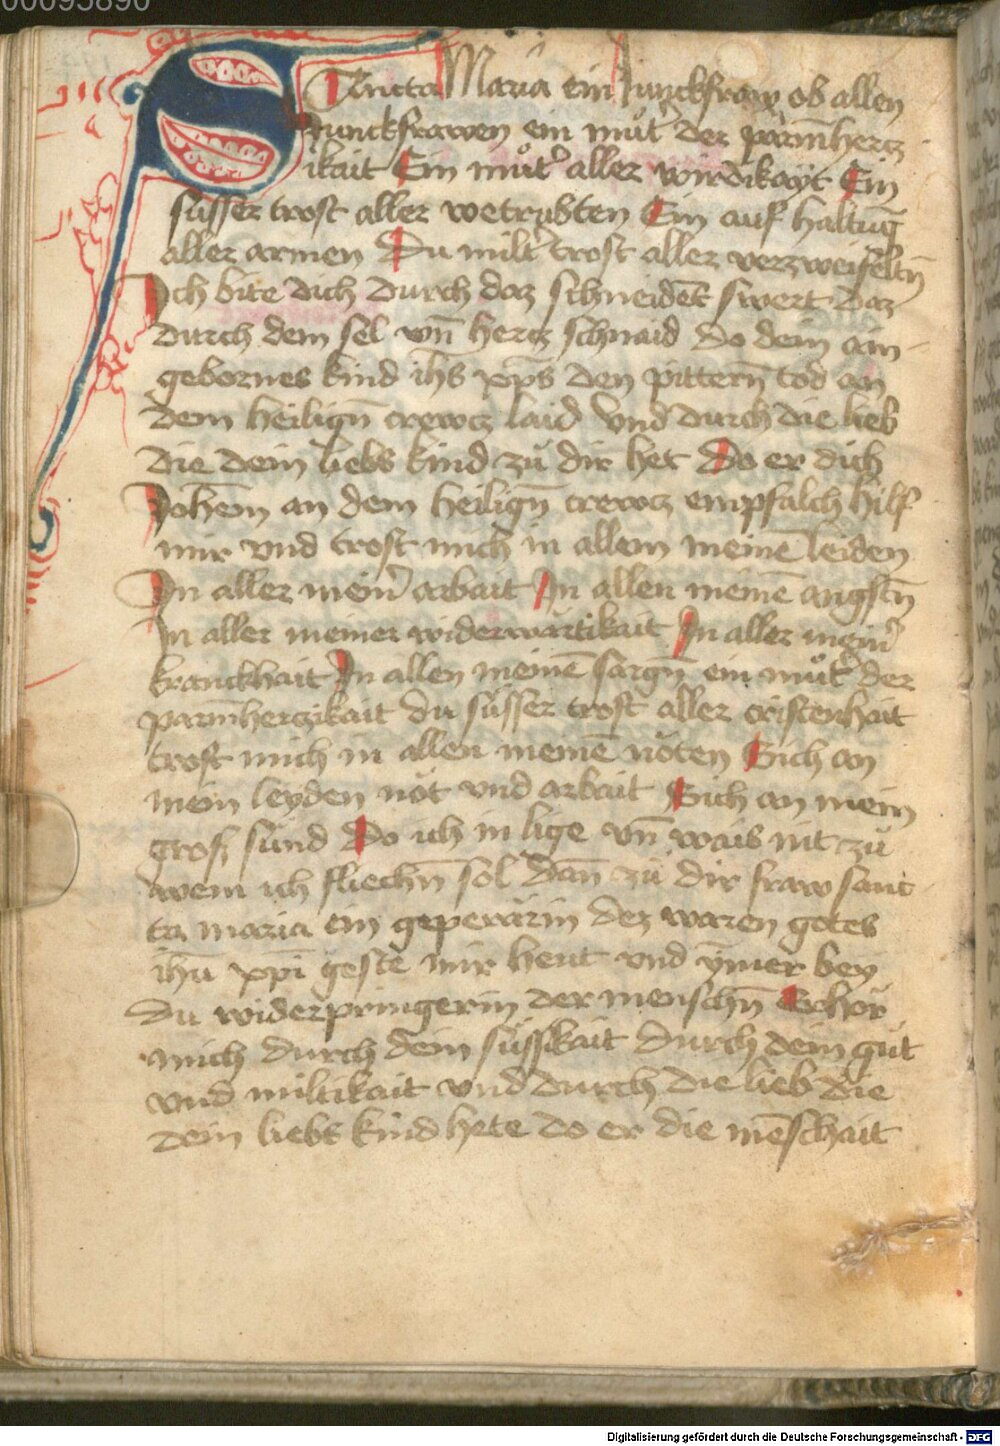 00095890
SAncta Maria ein Junckfraw ob allen
Junckfrawen ein můt' der parm̄hercz
ikait Ein můt' aller wirdikayt Ein
süsser trost aller wetrubten Ein auf haltūg
aller armen Du milt' trost aller verzweifeltn̄
Ich bite dich durch daz schneidēt swert daz
durch dein sel vn̄ hercz schnaid do dein ain
gebornes kind ih̄s xp̄s den pittern̄ tod an
dem heilign̄ crewcz laid Vnd durch die lieb
die dein liebs kind zů dir het Do er dich
Johēm an dem heilign̄ crewcz empfalch hilf
mir vnd trost mich in allem meinē leiden
In aller mein' arbait In allen meinē angstn̄
In aller meiner widerwärtikait In aller mein'
kranckhait In allen meinē sargn̄ ein můt' der
parm̄herczikait du süsser trost aller cristenhait
trost mich in allen meinē nöten Sich an
mein leyden nöt vnd arbait Sich an mein
gross sünd Do ich in lige vn̄ wais nit zů
wem ich fliechn̄ sol dan̄ zů dir fraw sanc
ta maria ein geperärin dez waren gotes
ih̄u xp̄i geste mir heut vnd ym̄er bey
du widerpringerin der menschn̄ Erhör
mich durch dein süssikait durch dein güt
vnd miltikait vnd durch die lieb die
dein liebs kind hete do er die mēschait
Digitalisierung gefördert durch die Deutsche Forschungsgemeinschaft - DFG